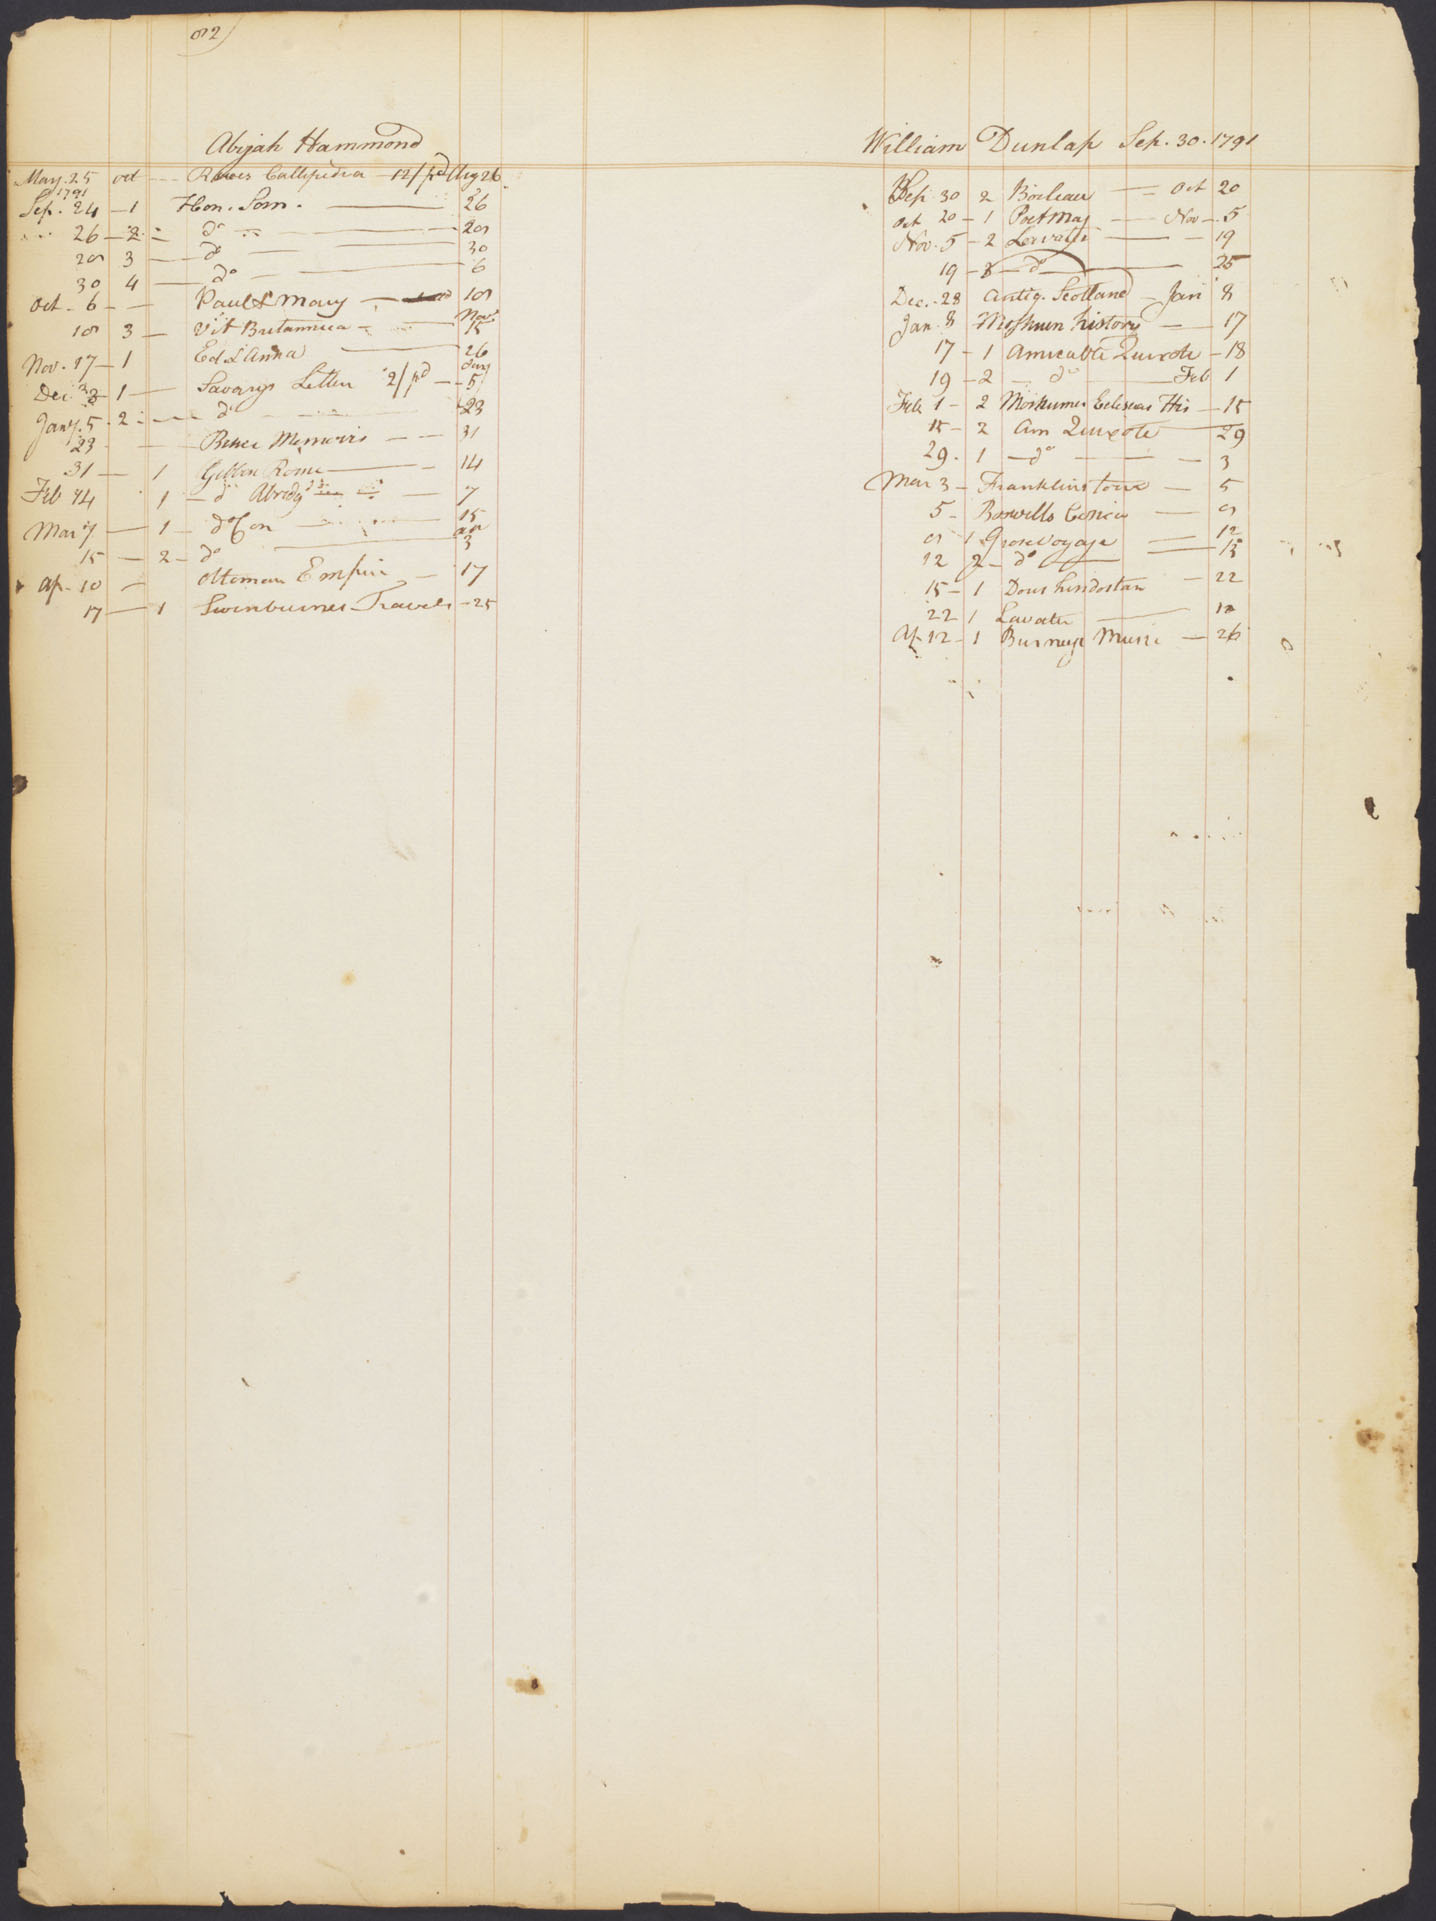 Abijah Hammond
May. 25 oct — Roxes Callipedia — 12/ pd Aug 26
1791
Sep. 24 — 1 Hon. Som. — 26
26 — 2 — do — 28
28 3 — do — 30
30 4 — do — 6
Oct — 6 — Paul & Mary — 18
18 3 — Vit Britannica — Nov 15
Nov. 17 — 1 Ed & Anna — 26
Dec 1 — Savarys Letters 2/ pd — Jany 5
Jany. 5. 2 — do — 23
23 — Memoirs — 31
31 — 1 Gibbn Rome — 14
Feb 14 1 — do Abridgd — 7
Mar 7 — 1 — do Con — 15
15 — 2 — do — 3
Ap. 10 — Ottoman Empire — 17
17 — 1 Swinburnes Travels — 25
William Dunlap Sep. 30. 1791
Sep 30 2 Boileau — Oct 20
Oct 20 — 1 Poet Mag — Nov — 5
Nov. 5 — 2 Lavater — 19
19 — 3 — do — 25
Dec. 28 Antiq. Scotland — Jan 8
Jan. 8 Moshum history — 17
17 — 1 Amicable Quixote — 18
19 — 2 — do — Feb 1
Feb 1 — 2 Moshumes Eclseas His — 15
15 — 2 Am Quixote — 29
29. 1 — do — 3
Mar 3 — Franklins tour — 5
5 — Boswells Corsica — 8
8 1 Grose Voyage — 12
12 2 — do — 15
15 — 1 Dows hindostan — 22
22 1 Lavater — 12
Ap 12 — 1 Burneys Music — 26